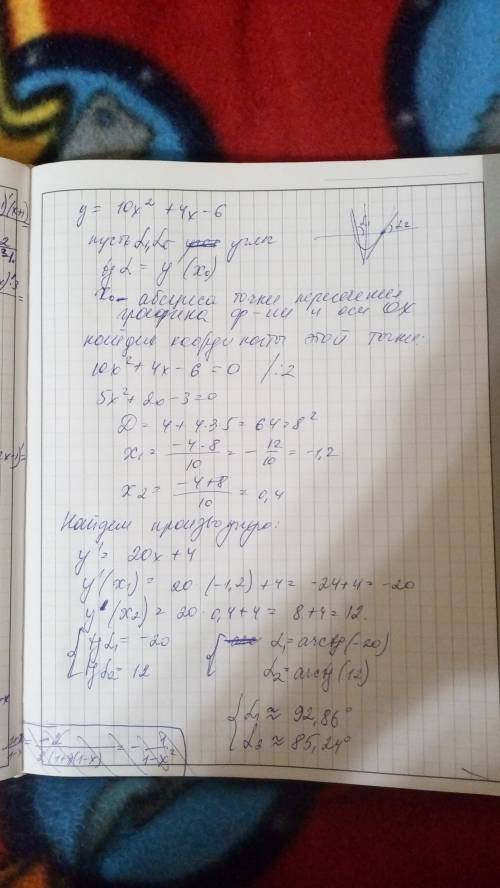 y = 10x² + 4x - 6
пусть α₁, α₂ углы
tg α = y'(x₀)
x₀ - абсциса точки пересечения
графика ф-ии и оси OX
найдем координаты этой точки:
10x² + 4x - 6 = 0 /:2
5x² + 2x - 3 = 0
D = 4 + 4·3·5 = 64 = 8²
x₁ = (-4-8)/10 = -12/10 = -1,2
x₂ = (-4+8)/10 = 0,4
Найдем производную:
y' = 20x + 4
y'(x₁) = 20·(-1,2) + 4 = -24+4 = -20
y'(x₂) = 20·0,4+4 = 8+4 = 12.
{ tg α₁ = -20 { α₁ = arctg(-20)
tg α₂ = 12 α₂ = arctg(12)
{ α₁ ≈ 92,86°
α₂ ≈ 85,24°